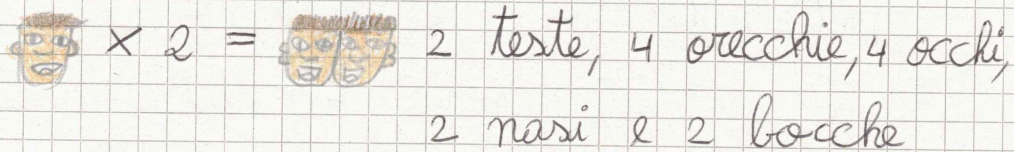 × 2 = 2 teste, 4 orecchie, 4 occhi,
2 nasi e 2 bocche